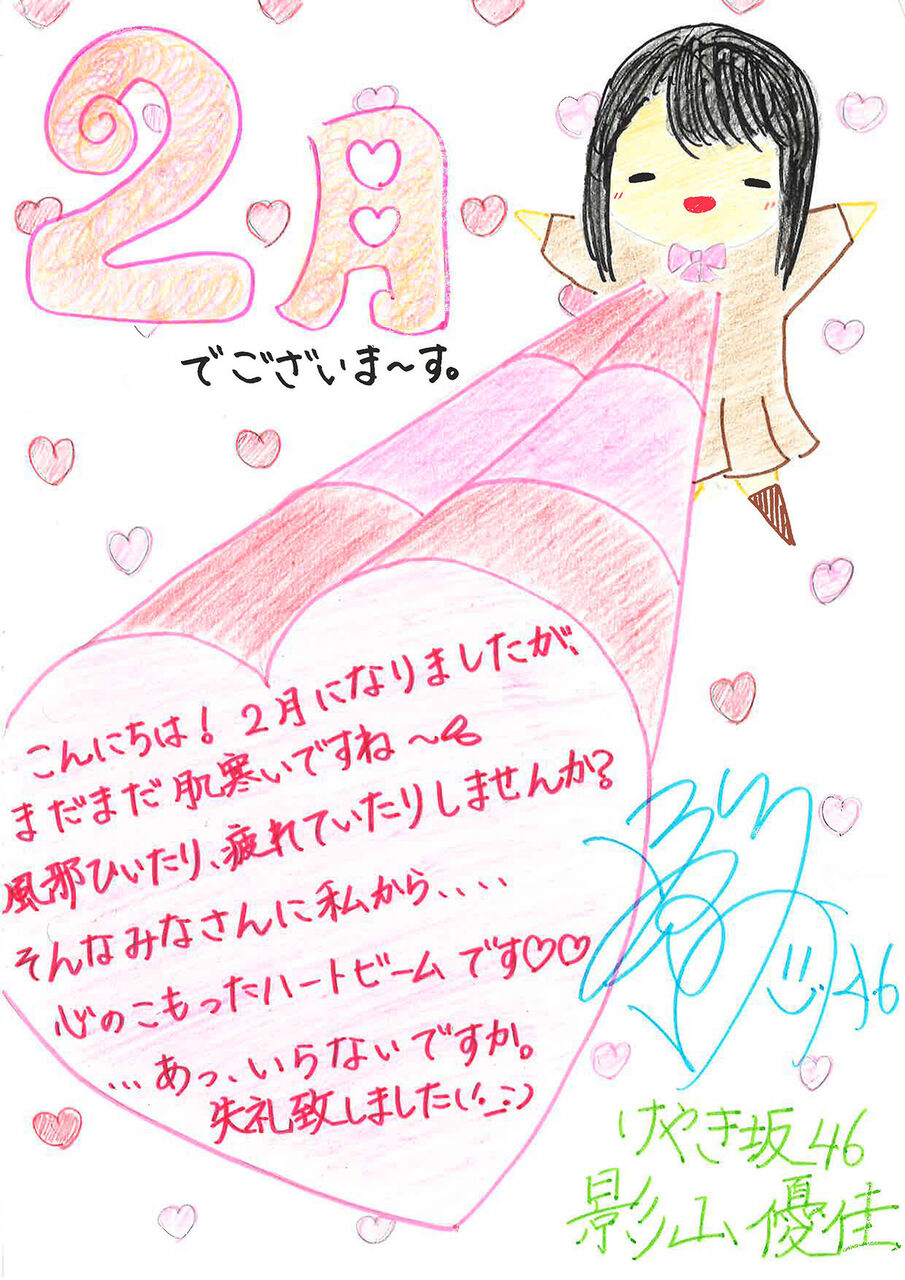 2月
でございま〜す。
こんにちは！2月になりましたが、
まだまだ肌寒いですね〜
風邪ひいたり、疲れていたりしませんか？
そんなみなさんに私から、、、、
心のこもったハートビームです♡♡
…あっ、いらないですか。
失礼致しました(´・_・`)
46
けやき坂46
影山優佳